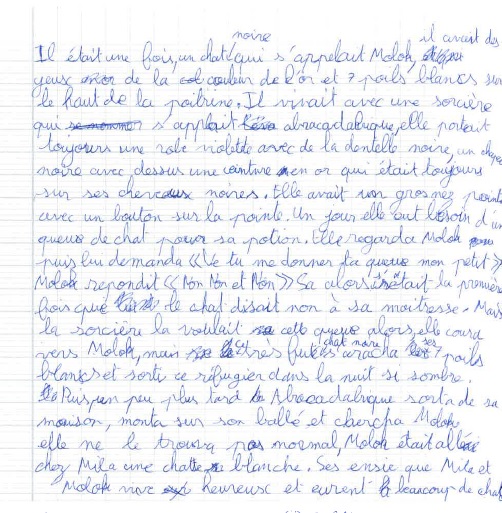 noire il avait des
Il était une fois, un chat qui s'appelait Moloh,
yeux de la couleur de l'or et 7 poils blancs sur
le haut de la poitrine. Il vivait avec une sorcière
qui s'applait abracadabrique, elle portait
toujours une robe violette avec de la dentelle noire, un
noire avec, dessus une ceinture en or qui était toujours
sur ses cheveux noires. Elle avait un gros nez
avec un bouton sur la pointe. Un jour elle eut besoin d'un
queue de chat pour sa potion. Elle regarda Moloh
puis lui demanda « Ve tu me donner ta queue mon petit »
Moloh repondit « Non Non et Non » Sa alors s'était la première
fois que le chat disait non à sa maitresse. Mais
la sorcière la voulait cette queue alors, elle coura
vers Moloh, mais le très chat noire aracha ses 7 poils
blancs et sorti ce réfugier dans la nuit si sombre.
Puis, un peu plus tard Abracadabrique sorta de sa
maison, monta sur son ballé et chercha Moloh
elle ne le trouva pas normal, Moloh était allé
chez Mila une chatte blanche. Ses ensie que Mila et
Moloh vive heureux et eurent beaucoup de chat